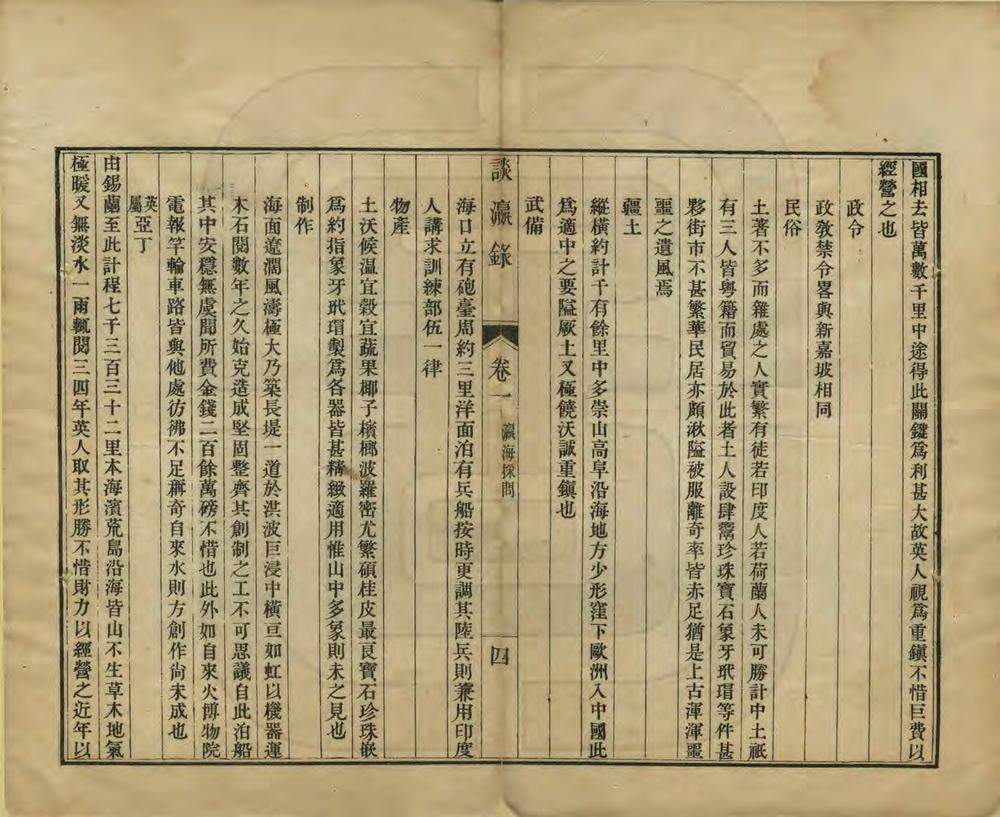 國相去皆萬數千里中途得此關鍵爲利甚大故英人視爲重鎭不惜巨費以
經營之也
政令
政敎禁令畧與新嘉坡相同
民俗
土著不多而雜處之人實繁有徒若印度人若荷蘭人未可勝計中土祇
有三人皆粤籍而貿易於此者土人設肆鬻珍珠寶石象牙玳瑁等件甚
夥街市不甚繁華民居亦頗湫隘被服離奇率皆赤足猶是上古渾渾噩
噩之遺風焉
疆土
縱橫約計千有餘里中多崇山高阜沿海地方少形窪下歐洲入中國此
爲適中之要隘厥土又極饒沃誠重鎭也
武備
談瀛錄 卷一 瀛海採問 四
海口立有砲臺周約三里洋面泊有兵船按時更調其陸兵則兼用印度
人講求訓練部伍一律
物產
土沃候温宜穀宜蔬果椰子檳榔波羅密尤繁碩桂皮最良寶石珍珠嵌
爲約指象牙玳瑁製爲各器皆甚精緻適用惟山中多象則未之見也
制作
海面遼濶風濤極大乃築長堤一道於洪波巨浸中橫亘如虹以機器運
木石閱數年之久始克造成堅固整齊其創制之工不可思議自此泊船
其中安穩無虞聞所費金錢二百餘萬磅不惜也此外如自來火博物院
電報竿輪車路皆與他處彷彿不足稱奇自來水則方創作尙未成也
英屬亞丁
由錫蘭至此計程七千三百三十二里本海濱荒島沿海皆山不生草木地氣
極暖又無淡水一雨輒閱三四年英人取其形勝不惜財力以經營之近年以